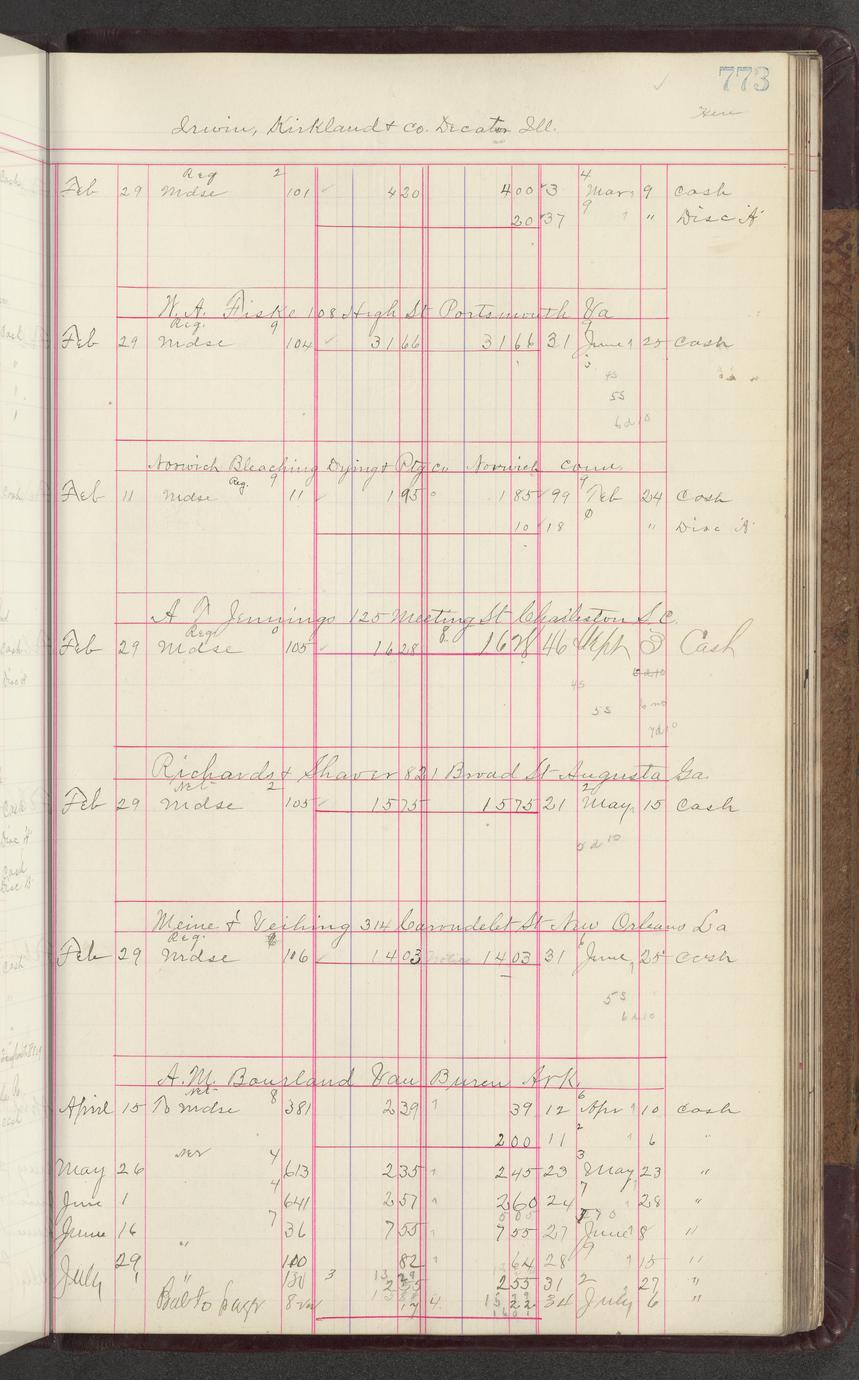 773
Here
Irwin, Kirkland & Co. Decator Ill.
Reg 2 4
Feb 29 Mdse 101 4 20 4 00 3 Mar 9 Cash
9
20 37 " " Disc 'A'
W. A. Fiske 108 High St Portsmouth Va
Reg. 9 9
Feb 29 Mdse 104 31 66 31 66 31 June 25 Cash
3
4s
5s
6 d 10
Norwich Bleaching Dying & Ptg Co Norwich Conn.
Reg. 9 9
Feb 11 Mdse 11 1 95 1 85 99 Feb 24 Cash
0
10 18 " Disc 'A'
A T Jennings 125 Meeting St Charleston S.C.
Reg 0 8
Feb 29 Mdse 105 16 28 16 28 46 Sept 3 Cash
4s
5s
7d10
Richards & Shaver 821 Broad St Augusta Ga.
Net 2 2
Feb 29 Mdse 105 15 75 15 75 21 May 15 Cash
5 d 10
Meine & Veihing 314 Carondelet St New Orleans La
Reg. 6
Feb 29 Mdse 106 14 03 14 03 31 June 25 Cash
5s
6 d 10
A. M. Bourland Van Buren Ark.
Net 8 6
April 15 To Mdse 381 2 39 39 12 Apr 10 Cash
2
2 00 11 " 6 "
4 3
May 26 613 2 35 2 45 23 May 23 "
4 7
June 1 641 2 57 2 60 24 " 28 "
7
June 16 36 7 55 7 55 27 June 8 "
" 9
July 29 100 82 64 28 " 15 "
" 130 3 2 55 2 55 31 2 27 "
Bal to Lager 17 4 15 22 34 July 6 "